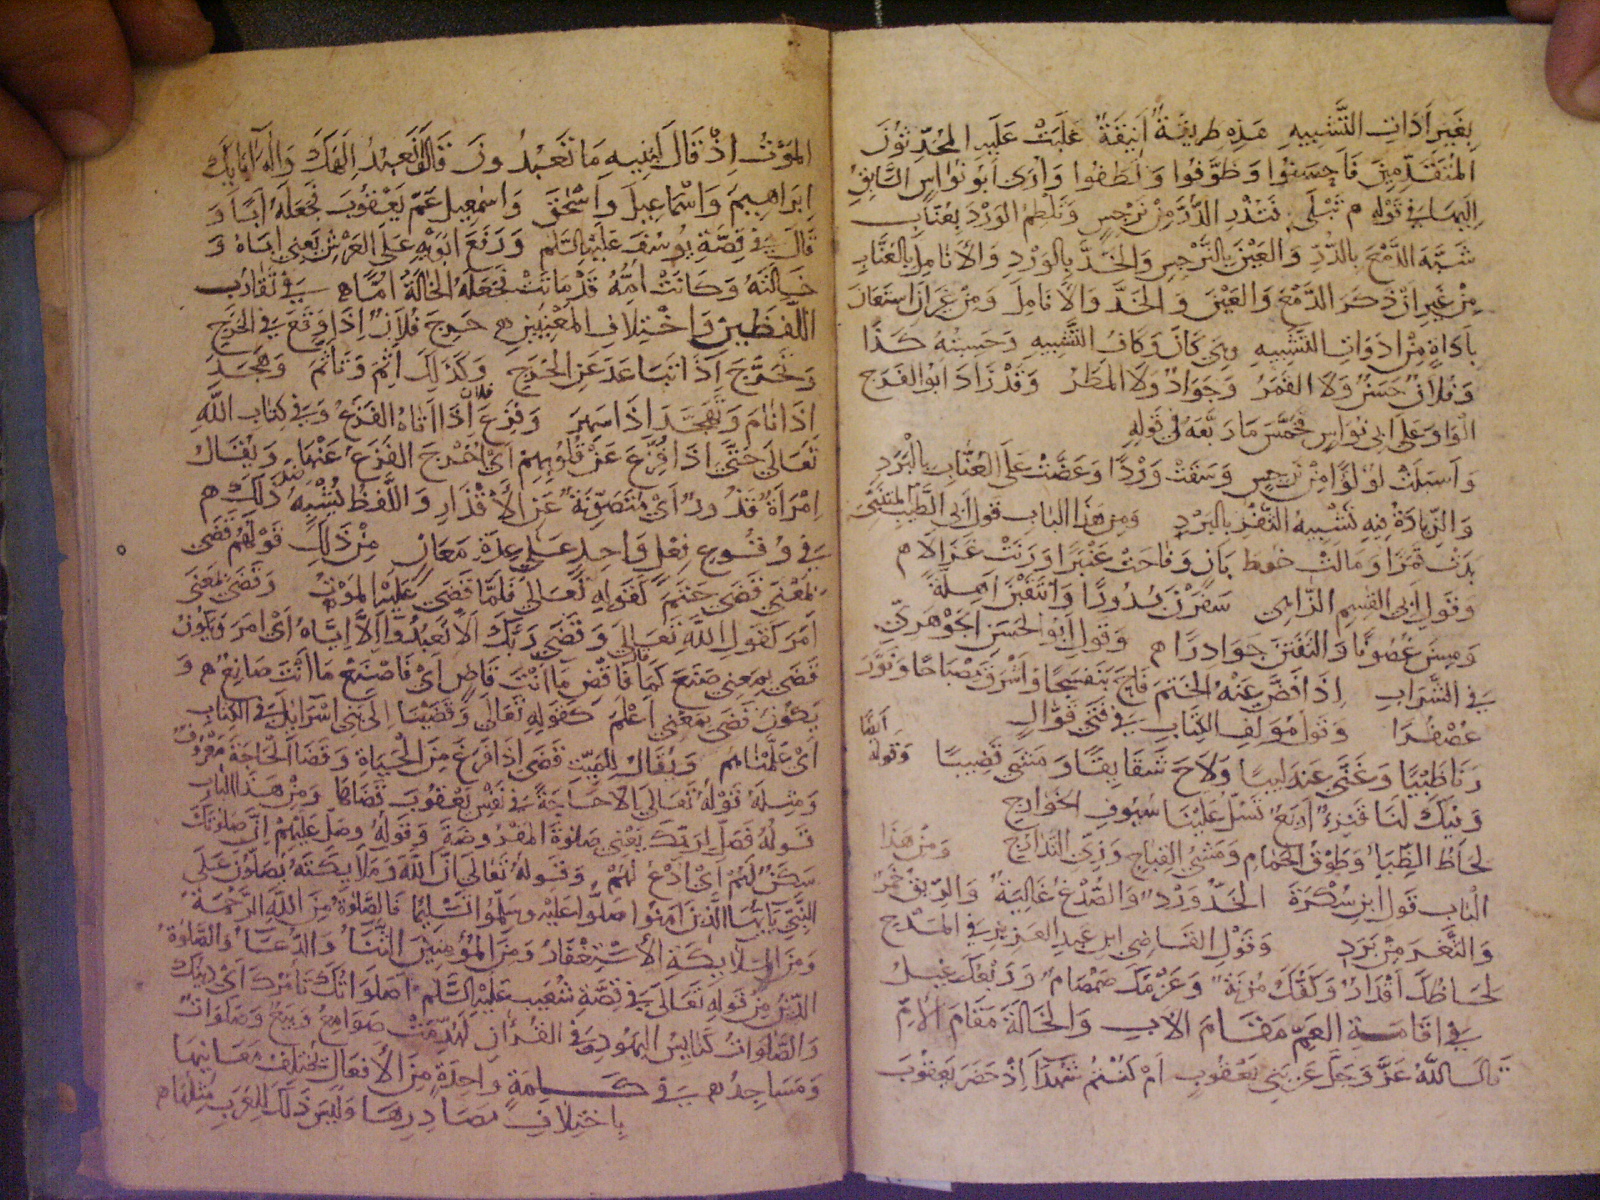 بِغَيرِ أَدَاتِ التَّشبِيهِ هَذِهِ طريقةٌ أنيقَةٌ غَلَبَتْ عَلَيه المحدثون
المتقدّمين فَأحسنوا وظرّفوا ولطفوا وأرى أبو نواس السَّابق
إليها في قوله تبكي فتذري الدُّرَّ مِنْ نرجسٍ وتلطم الوَرْدَ بِعُنَّاب
شَبَّهَ الدَّمْعَ بالدُّرِّ والعَيْنَ بالنَّرْجِسِ والخَدَّ بِالوَرْدِ والأنامِلَ بالعُنَّابِ
مِنْ غَيرِ أنْ ذكَرَ الدَّمْعَ والعَيْنَ والخَدَّ والأنامِلَ ومِنْ غَيرِ أنْ استعان
بأداةٍ مِنْ أدوات التَّشبيه وهي كَأنَّ وكافُ التَّشبيهِ وحَسِبتُه كذا
وفُلانٌ حَسَنٌ ولا القَمَرُ وجَوَادٌ ولا المَطَرُ وقَدْ زادَ أبو الفَرَج
الوَاوَا على أبي نواسٍ فخمَّسَ ما ربَّعَه في قوله
وأسبَلَتْ لؤلؤًا مِنْ نرجِسٍ وسَقَتْ وَرْدًا وعَضَّتْ على العُنَّابِ بالبَرَدِ
والزّيادةُ فيهِ تَشْبِيهُ الثَّغْرِ بالبَرَدِ ومِن هَذا الباب قول أبي الطَّيّبِ المتنبّي
بَدَتْ قَمَرًا ومالَتْ خوطَ بانٍ وفاحَتْ عَنْبَرًا ورَنَتْ غَزَالا
وقول أبي القسم الزاهي سَفَرْنَ بُدُورًا وانْتَقَبْنَ أهِلَّةً
ومِسْنَ غُصُونًا والتَفَتْنَ جَوَاذِرَا وقول أبو الحسَنِ الجَوهَريّ
في الشَّرَابِ إذَا فُضَّ عَنْهُ الخَتْمُ فاحَ بَنَفْسَجًا وأشْرَقَ مِصْبَاحًا ونَوَّرَ
عُصْفُرَا وقول مؤلف الكِتَابِ في فتى قَوَّالٍ
رَنَا ظَبْيًا وغَنَّى عَندَلِيبًا ولاحَ شَقَايِقًا ومَشَى قَضِيبًا وقوله أيضًا
وفيكَ لَنَا فِتَنٌ أربَعٌ تسُلّ عَلَيْنَا سُيُوفَ الخوارج
لِحَاظُ الظِّبَاءِ وطَوْقُ الحَمَامِ ومَشْيُ القِبَاجِ وزِيّ التَّدَارِج ومِنْ هَذَا
الباب قول ابن سُكَّرَة الخَدُّ وَرْدٌ والصُّدْغُ غَالِيَةٌ والرِّيقُ خَمْرٌ
والثَّغْرُ مِنْ بَرَدِ وقول القاضي ابن عبد العزيز في المدح
لِحَاظُكَ أقْدَارٌ وكَفُّكَ مُزنَةٌ وعَزْمُكَ صَمْصَامٌ ورَبْعُكَ غِيلُ
في إقامَةِ العَمِّ مَقَامَ الأبِ والخَالَةِ مَقَامَ الأمِّ
قَالَ اللّهُ عَزَّ وَجَلَّ عَن بَني يَعقُوبِ أمْ كُنْتُمْ شُهَدَاَ إذْ حَضَرَ يَعقُوبَ
المَوْتُ إذْ قَالَ لِبَنِيهِ مَا تَعْبُدُونَ قَالُوا نَعْبُدُ إلَهَكَ وإلَهَ آبَايِكَ
إبرَاهِيمَ وإسْمَاعِيلَ وإسْحَقَ وإسمعيل عَمّ يَعْقُوبَ فَجَعَلَهُ أبًا و
قالَ في قصّةِ يُوسُفَ عَلَيْهِ السَّلم ورَفَعَ أبَوَيْهِ عَلَى العَرْشِ يَعني أبَاهُ و
خَالَتَهُ وكَانَتْ أُمُّهُ قَدْ مَاتَتْ فَجَعَلَهُ الخَالَةُ أُمًّا في تقارُب
اللَّفظَينِ واخْتِلافِ المَعْنَيَينِ حَرِجَ فُلانٌ إذَا وَقَعَ في الحَرَجِ
وتَحَرَّجَ إذَا تَبَاعَدَ عَنِ الحَرَجِ وكَذَلكَ أثِمَ وتَأثَّمَ وهَجَدَ
إذَا نَامَ وتَهَجَّدَ إذَا سَهِرَ وفَزِعَ فلانٌ إذَا أتَاهُ الفَزَعُ وفي كِتَابِ اللَّهِ
تَعَالَى حَتَّى إذَا فُزِّعَ عَنْ قُلُوبِهِمْ أيْ أُخْرِجَ الفَزَعُ عَنْهَا ويُقَالُ
امْرَأةٌ قَذُورٌ أيْ مُتَصَوِّنَةٌ عَنِ الأقْذَارِ واللَّفظُ يُشْبِهُ ضدّ ذَلِكَ
في وُقُوعِ فِعْلٍ واحِدٍ عَلَى عِدَّةِ مَعَانٍ مِنْ ذَلِكَ قَوْلُهُم قَضَى
بمَعْنَى قَضَى حَتَمَ كَقَولِهِ تَعَالى فَلَمَّا قَضَيْنَا عَلَيْهِ المَوْتَ وقَضَى بمَعنى
أمَرَ كَقَولِ اللَّهِ تَعَالى وقَضَى رَبُّكَ ألاَّ تَعْبُدُوا إلاَّ إيَّاهُ أيْ أمَرَ ويَكُونُ
قَضَى بِمَعنى صَنَعَ كَمَا قال فَاقْضِ مَا أنْتَ قَاضٍ أيْ فَاصْنَعْ مَا أنتَ صَانِعٌ و
يَكُونُ قَضَى بمَعْنى أعْلَمَ كَقَولِهِ تَعَالَى وقَضَيْنَا إلى بَني إسْرَايلَ في الكِتَابِ
أيْ أعْلَمْنَاهُم ويُقَالُ لِلمَيّتِ قَضَى إذَا فَرَغَ مِنَ الحَيَاةِ وقَضَاءُ الحَاجَةِ مَعْرُوفٌ
ومِثلُهُ قَوْلُهُ تَعَالى إلاّ حَاجَةً في نَفْسِ يَعْقُوبَ قَضَاهَا ومِنْ هَذا الباب
قَولُهُ فَصَلِّ لِرَبّكَ يَعْني صَلوةَ المَفْرُوضَةَ وقَولُهُ وصَلِّ عَلَيْهِمْ إنَّ صَلوتَكَ
سَكَنٌ لَهُمْ أيْ ادْعُ لَهُمْ وقَولُهُ تَعَالى إنَّ اللّهَ ومَلايِكَتَهُ يُصَلُّونَ عَلَى
النَّبيّ يَأيُّهَا الَّذِينَ آمَنُوا صَلُّوا عَلَيْهِ وسَلِّمُوا تَسْلِيمًا فَالصَّلوةُ مِنَ اللَّهِ الرَّحْمَةُ
ومِنَ المَلايِكَةِ الاسْتِغْفَارُ ومِنَ المُؤْمِنِينَ الثَّنَاءُ والدُّعَاءُ والصَّلوةُ
الدِّينُ مِنْ قَولِهِ تَعَالَى في قِصَّةِ شُعَيبٍ عَلَيهِ السَّلم أصَلَوَاتُكَ تَأمُرُكَ أيْ دِينُك
والصَّلَوَاتُ كَنَايِسُ اليَهُودِ وفي القُرْآنِ لَهُدِّمَتْ صَوَامِعُ وبِيَعٌ وصَلَوَاتٌ
ومَسَاجِدُ في كَلِمَةٍ واحِدَةٍ مِنَ الأفعَالِ تَخْتَلِفُ مَعَانِيهَا
بِاخْتِلافِ مَصَادِرِهَا ولَيْسَ ذَلكَ لِلغَيرِ العَرَبِ مثلهَا